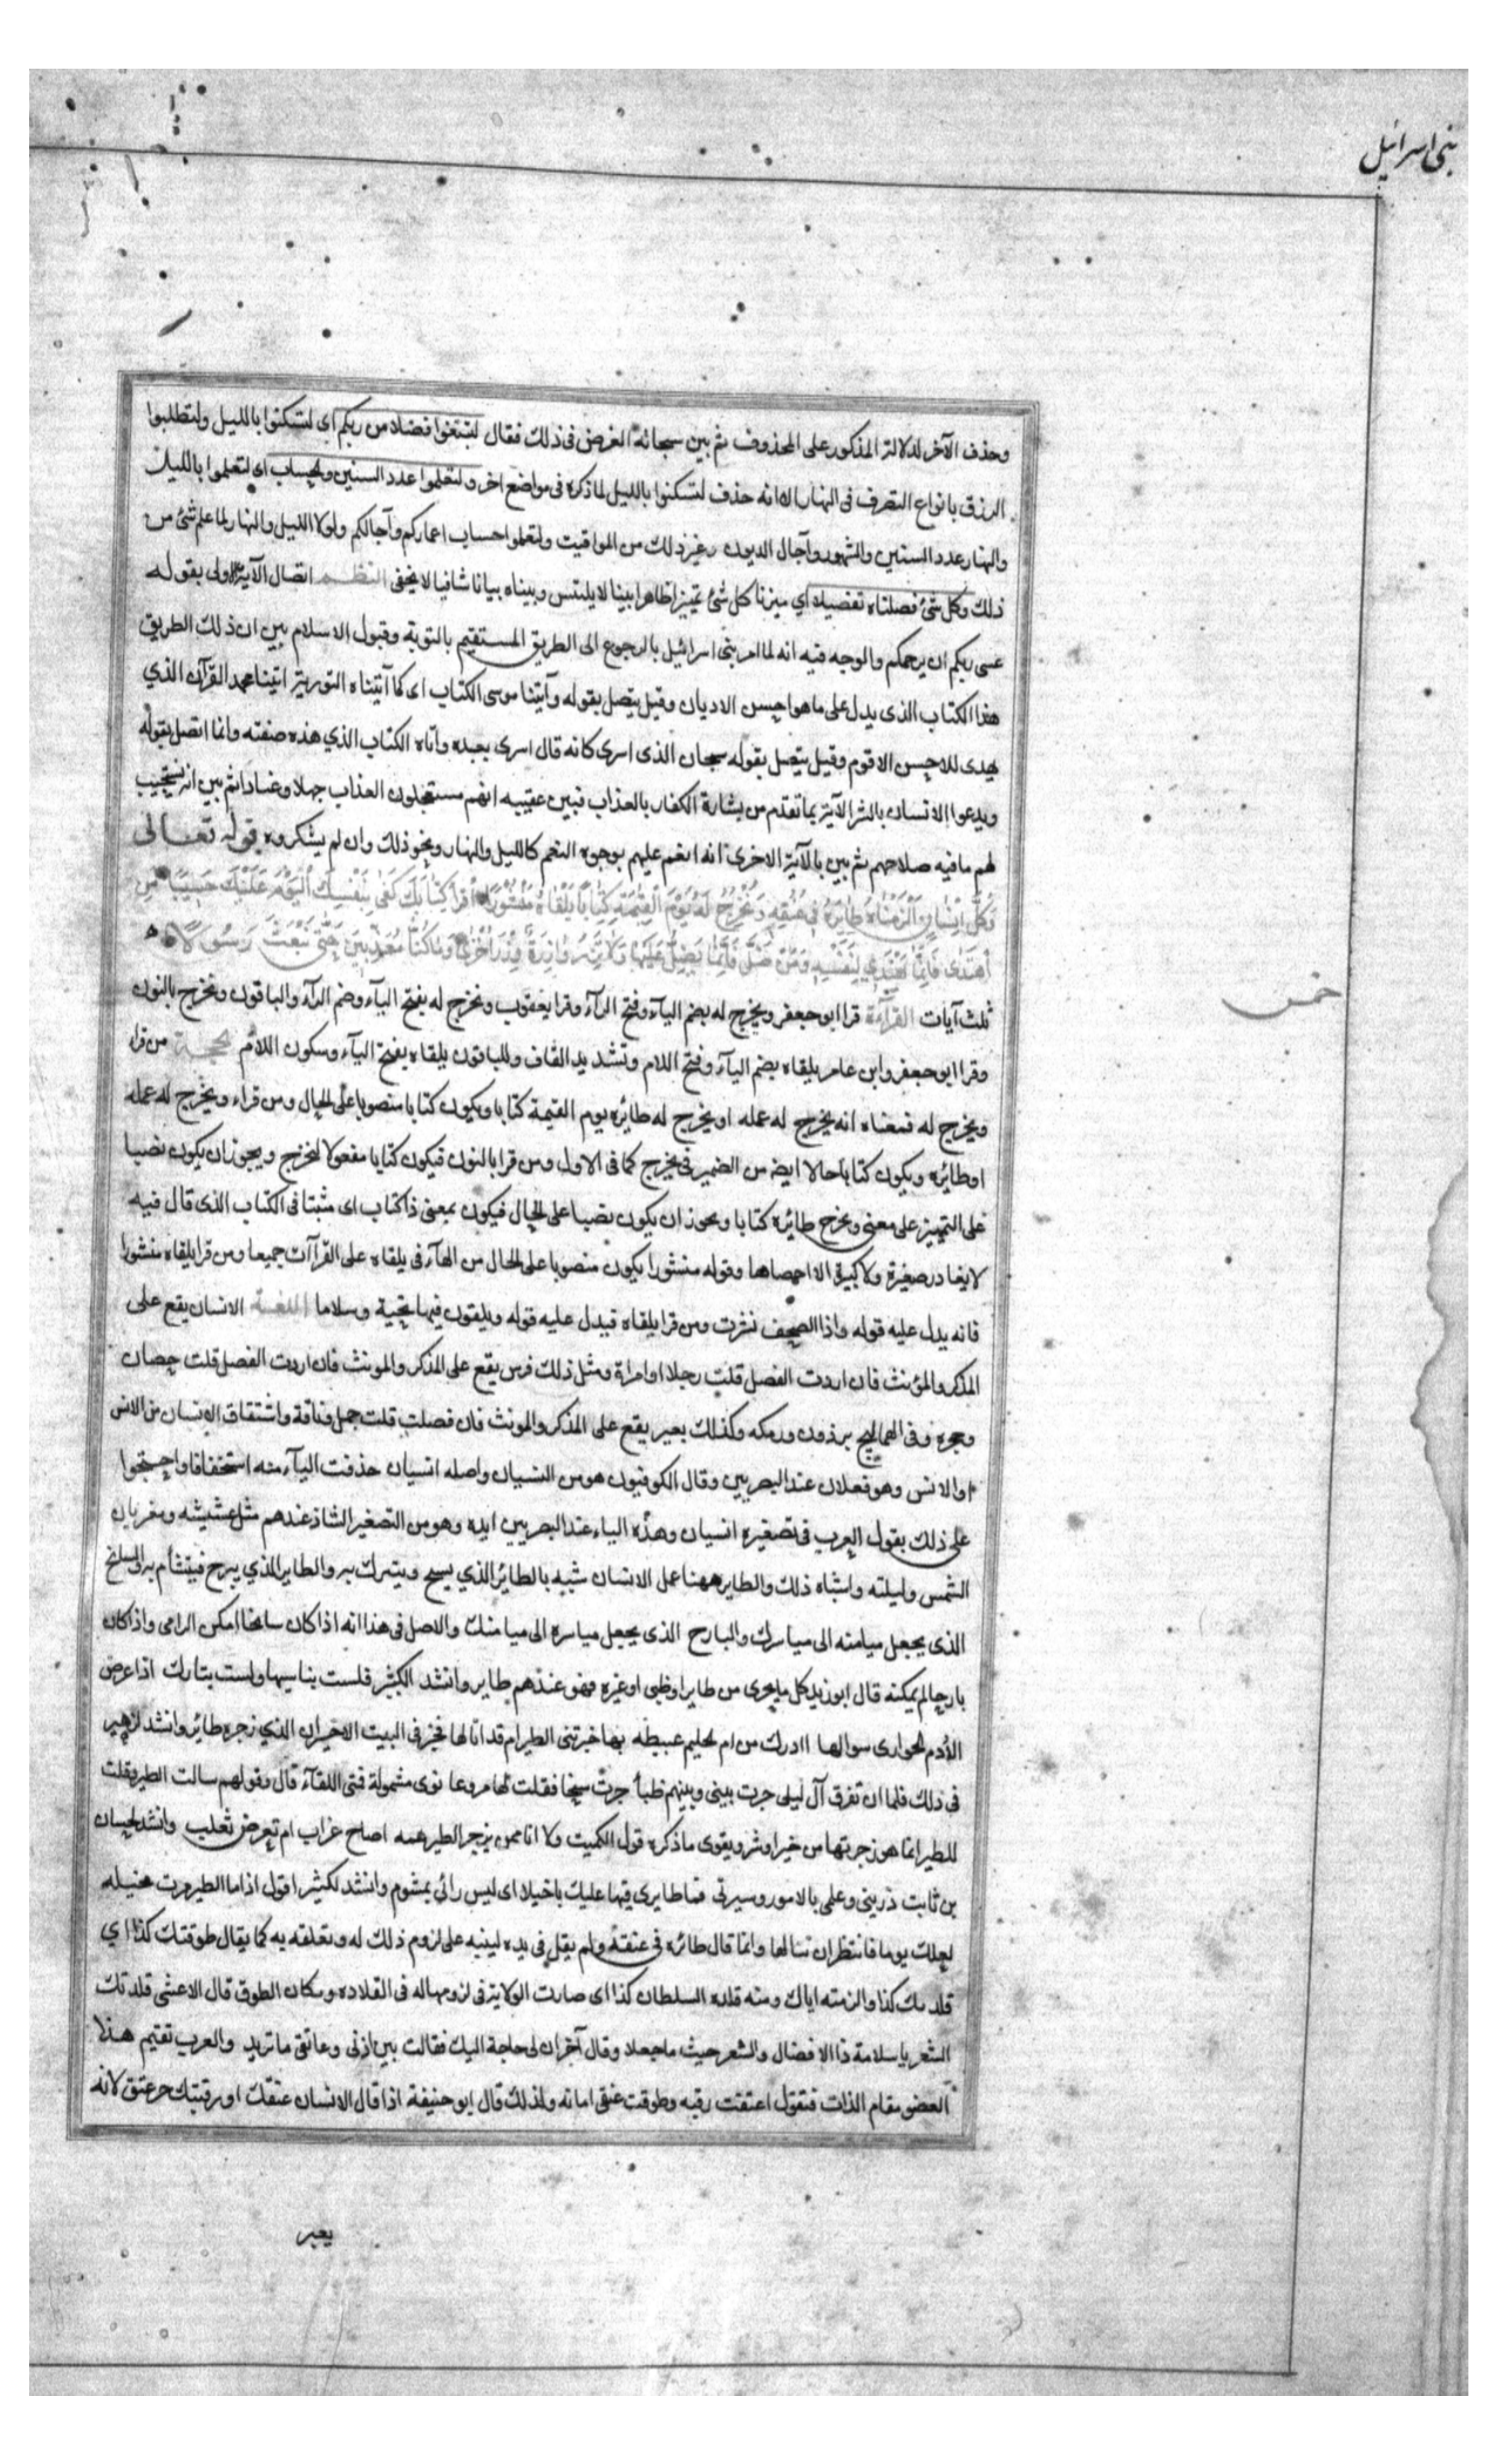 بنى اسرائيل
وحذف الآخر لدلالة المذكور على المحذوف ثم بين سبحانه الغرض فى ذلك فقال لتبتغوا فضلا من ربكم اى لتسكنوا بالليل ولتطلبوا
الرزق بانواع التصرف فى النهار الا انه حذف لتسكنوا بالليل لما ذكره فى مواضع اخر ولتعلموا عدد السنين والحساب اى لتعلموا بالليل
والنهار عدد السنين والشهور وآجال الديون وغير ذلك من المواقيت ولتعلموا حساب اعماركم وآجالكم ولولا الليل والنهار لما علم شئ من
ذلك وكل شئ فصلناه تفصيلا اي ميزنا كل شئ تمييزا ظاهرا بينا لا يلتبس وبيناه بيانا شافيا لا يخفى النظم اتصال الآية الاولى بقوله
عسى ربكم ان يرحمكم والوجه فيه انه لما امر بنى اسرائيل بالرجوع الى الطريق المستقيم بالتوبة وقبول الاسلام بين ان ذلك الطريق
هذا الكتاب الذى يدل على ما هو احسن الاديان وقيل يتصل بقوله وآتينا موسى الكتاب اى كما آتيناه التورية اتينا محمد القرآن الذي
يهدى للاحسن الاقوم وقيل يتصل بقوله سبحان الذى اسرى كانه قال اسرى بعبده وآتاه الكتاب الذي هذه صفته وانما اتصل بقوله
ويدعوا الانسان بالشر الآية بما تقدم من بشارة الكفار بالعذاب فبين عقيبه انهم مستعجلون العذاب جهلا وعنادا ثم بين انه يستجيب
لهم ما فيه صلاحهم ثم بين بالآية الاخرى انه انعم عليهم بوجوه النعم كالليل والنهار ونحو ذلك وان لم يشكروه قوله تعالى
وَكُلَّ اِنْسَانٍ اَلْزَمْنَاهُ طَائِرَهُ فِي عُنُقِهِ وَنُخْرِجُ لَهُ يَوْمَ الْقِيمَةِ كِتَابًا يَلْقَاهُ مَنْشُورًا اِقْرَأْ كِتَابَكَ كَفَى بِنَفْسِكَ الْيَوْمَ عَلَيْكَ حَسِيبًا مَنِ
اهْتَدَى فَاِنَّمَا يَهْتَدِي لِنَفْسِهِ وَمَنْ ضَلَّ فَاِنَّمَا يَضِلُّ عَلَيْهَا وَلَا تَزِرُ وَازِرَةٌ وِزْرَ اُخْرَى وَمَا كُنَّا مُعَذِّبِينَ حَتَّى نَبْعَثَ رَسُولًا
ثلث آيات القراءة قرا ابو جعفر ويخرج له بضم الياء وفتح الراء وقرا يعقوب ويخرج له بفتح الياء وضم الراء والباقون ونخرج بالنون
خمس
وقرا ابو جعفر وابن عامر يلقاه بضم الياء وفتح اللام وتشديد القاف والباقون يلقاه بفتح الياء وسكون اللام الحجة من قراء
ويخرج له فمعناه انه يخرج له عمله او يخرج له طائره يوم القيمة كتابا ويكون كتابا منصوبا على الحال ومن قراء ويخرج له عمله
او طائره ويكون كتابا حالا ايضا من الضمير فى يخرج كما فى الاول ومن قرا بالنون فيكون كتابا مفعولا لنخرج ويجوز ان يكون نصبا
على التمييز على معنى ونخرج طائره كتابا ويجوز ان يكون نصبا على الحال فيكون بمعنى ذا كتاب اى مثبتا فى الكتاب الذى قال فيه
لا يغادر صغيرة ولا كبيرة الا احصاها وقوله منشورا يكون منصوبا على الحال من الهاء فى يلقاه على القراآت جميعا ومن قرا يلقاه منشورا
فانه يدل عليه قوله واذا الصحف نشرت ومن قرا يلقاه فيدل عليه قوله ويلقون فيها تحية وسلاما اللغة الانسان يقع على
المذكر والمؤنث فان اردت الفصل قلت رجلا او امراة ومثل ذلك فرس يقع على المذكر والمونث فان اردت الفصل قلت حصان
وحجره وفى الهماليج برذون ورمكه وكذلك بعير يقع على المذكر والمونث فان فصلت قلت جمل وناقة واشتقاق الانسان من الانس
او الانس وهو فعلان عند البصريين وقال الكوفيون هو من النسيان واصله انسيان حذفت الياء منه استخفافا واحتجوا
على ذلك بقول العرب فى تصغيره انسيان وهذه الياء عند البصريين ايده وهو من التصغير الشاذ عندهم مثل عشيشه ومغربان
الشمس ولييلته واشباه ذلك والطاير ههنا عمل الانسان شبه بالطائر الذي يسنح ويتبرك به والطاير الذي يبرح فيتشأم به والسانح
الذى يجعل ميامنه الى مياسرك والبارح الذى يجعل مياسره الى ميامنك والاصل فى هذا انه اذا كان سانحا امكن الرامى واذا كان
بارحا لم يمكنه قال ابو زيد كل ما يجرى من طاير او ظبى او غيره فهو عندهم طاير وانشد لكثير فلست بناسيها ولست بتارك اذا عرض
الأدم الجوارى سوالها اادرك من ام الحليم غبيطه بها خبرتنى الطير ام قد اتا لها فخبر فى البيت الاخير ان الذي زجره طائر وانشد لزهير
فى ذلك فلما ان تفرق آل ليلى جرت بينى وبينهم ظبأ جرت سنحا فقلت لها مروعا نوى مشمولة فمتى اللقآء قال وقولهم سالت الطير وقلت
للطير انما هو زجرتها من خير او شر ويقوى ما ذكره قول الكميت ولا انا ممن يزجر الطير همه اصاح غراب ام تعرض ثعلب وانشد لحسان
بن ثابت ذريني وعلمى بالامور وسيرتى فما طايرى فيها عليك باخيلا اى ليس رائى بمشوم وانشد لكثير اقول اذا ما الطير مرت مخيله
لعلك يوما فانتظر ان تنالها وانما قال طائره فى عنقه ولم يقل فى يده لينبه على لزوم ذلك له وتعلقه به كما يقال طوقتك كذا اي
قلدتك كذا والزمته اياك ومنه قلده السلطان كذا اى صارت الولاية فى لزومها له فى القلاده ومكان الطوق قال الاعشى قلدتك
الشعر يا سلامة ذا الافضال والشعر حيث ما جعلا وقال آخر ان لى حاجة اليك فقالت بين اذنى وعاتقى ما تريد والعرب تقيم هذا
العضو مقام الذات فتقول اعتقت رقبه وطوقت عنقى امانه ولذلك قال ابو حنيفة اذا قال الانسان عنقك او رقبتك حر عتق لانه
يعبر